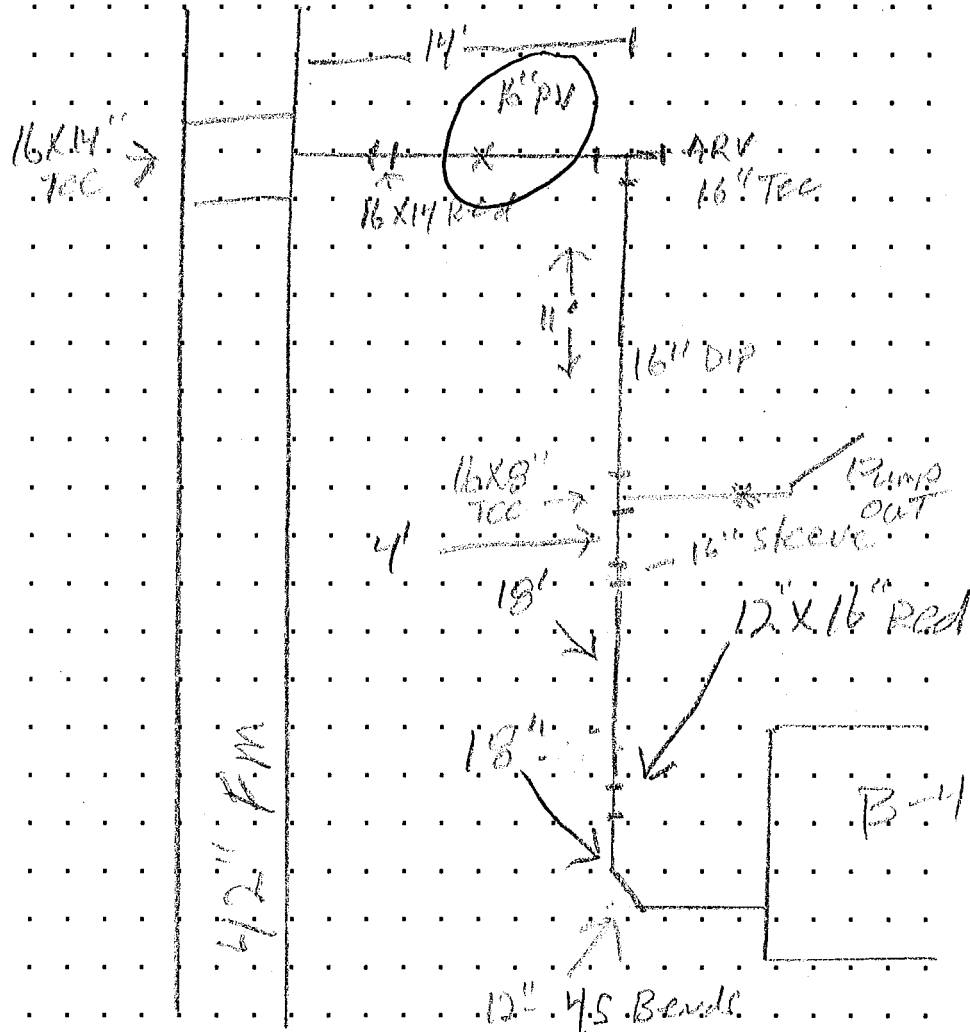 14'
16" PV
16X14"
Tee
ARV
16" Tee
16X14 Red
11'
16" DIP
16X8"
Tee
Pump
OUT
4'
16" Sleeve
18'
12" X 16" Red
18"
B-4
42" FM
12" 45 Bends